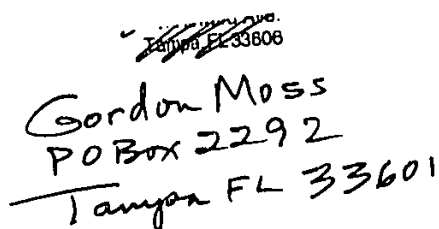 Tampa FL 33606
Gordon Moss
PO Box 2292
Tampa FL 33601